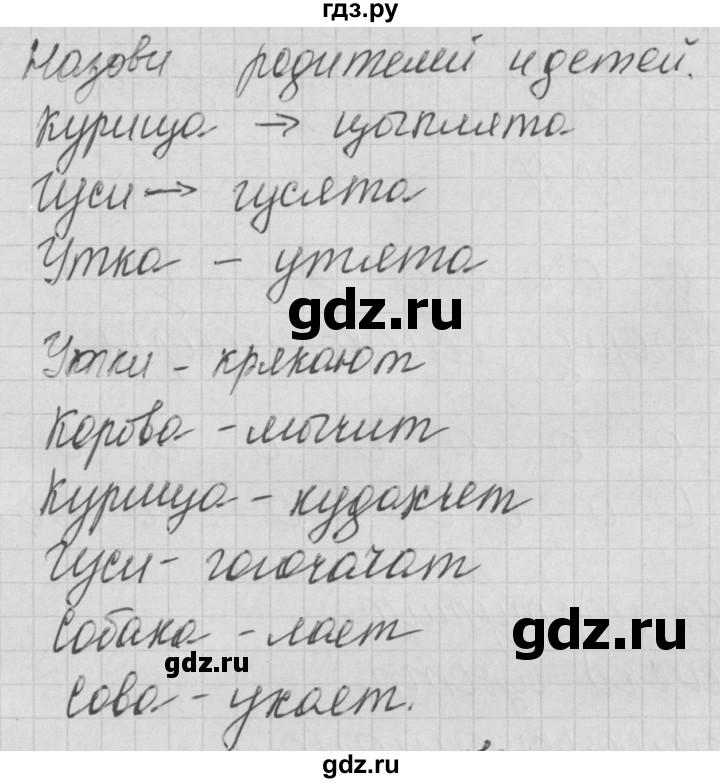 гдз.ру
Назови родителей и детей.
Курица → цыплята
Гуси → гусята
Утка - утята
gdz.ru
Утки - крякают
Корова - мычит
Курица - кудахчет
Гуси - гогочачат
Собака - лает
gdz.ru
gdz.ru
Сова - ухает.
гдз.ру